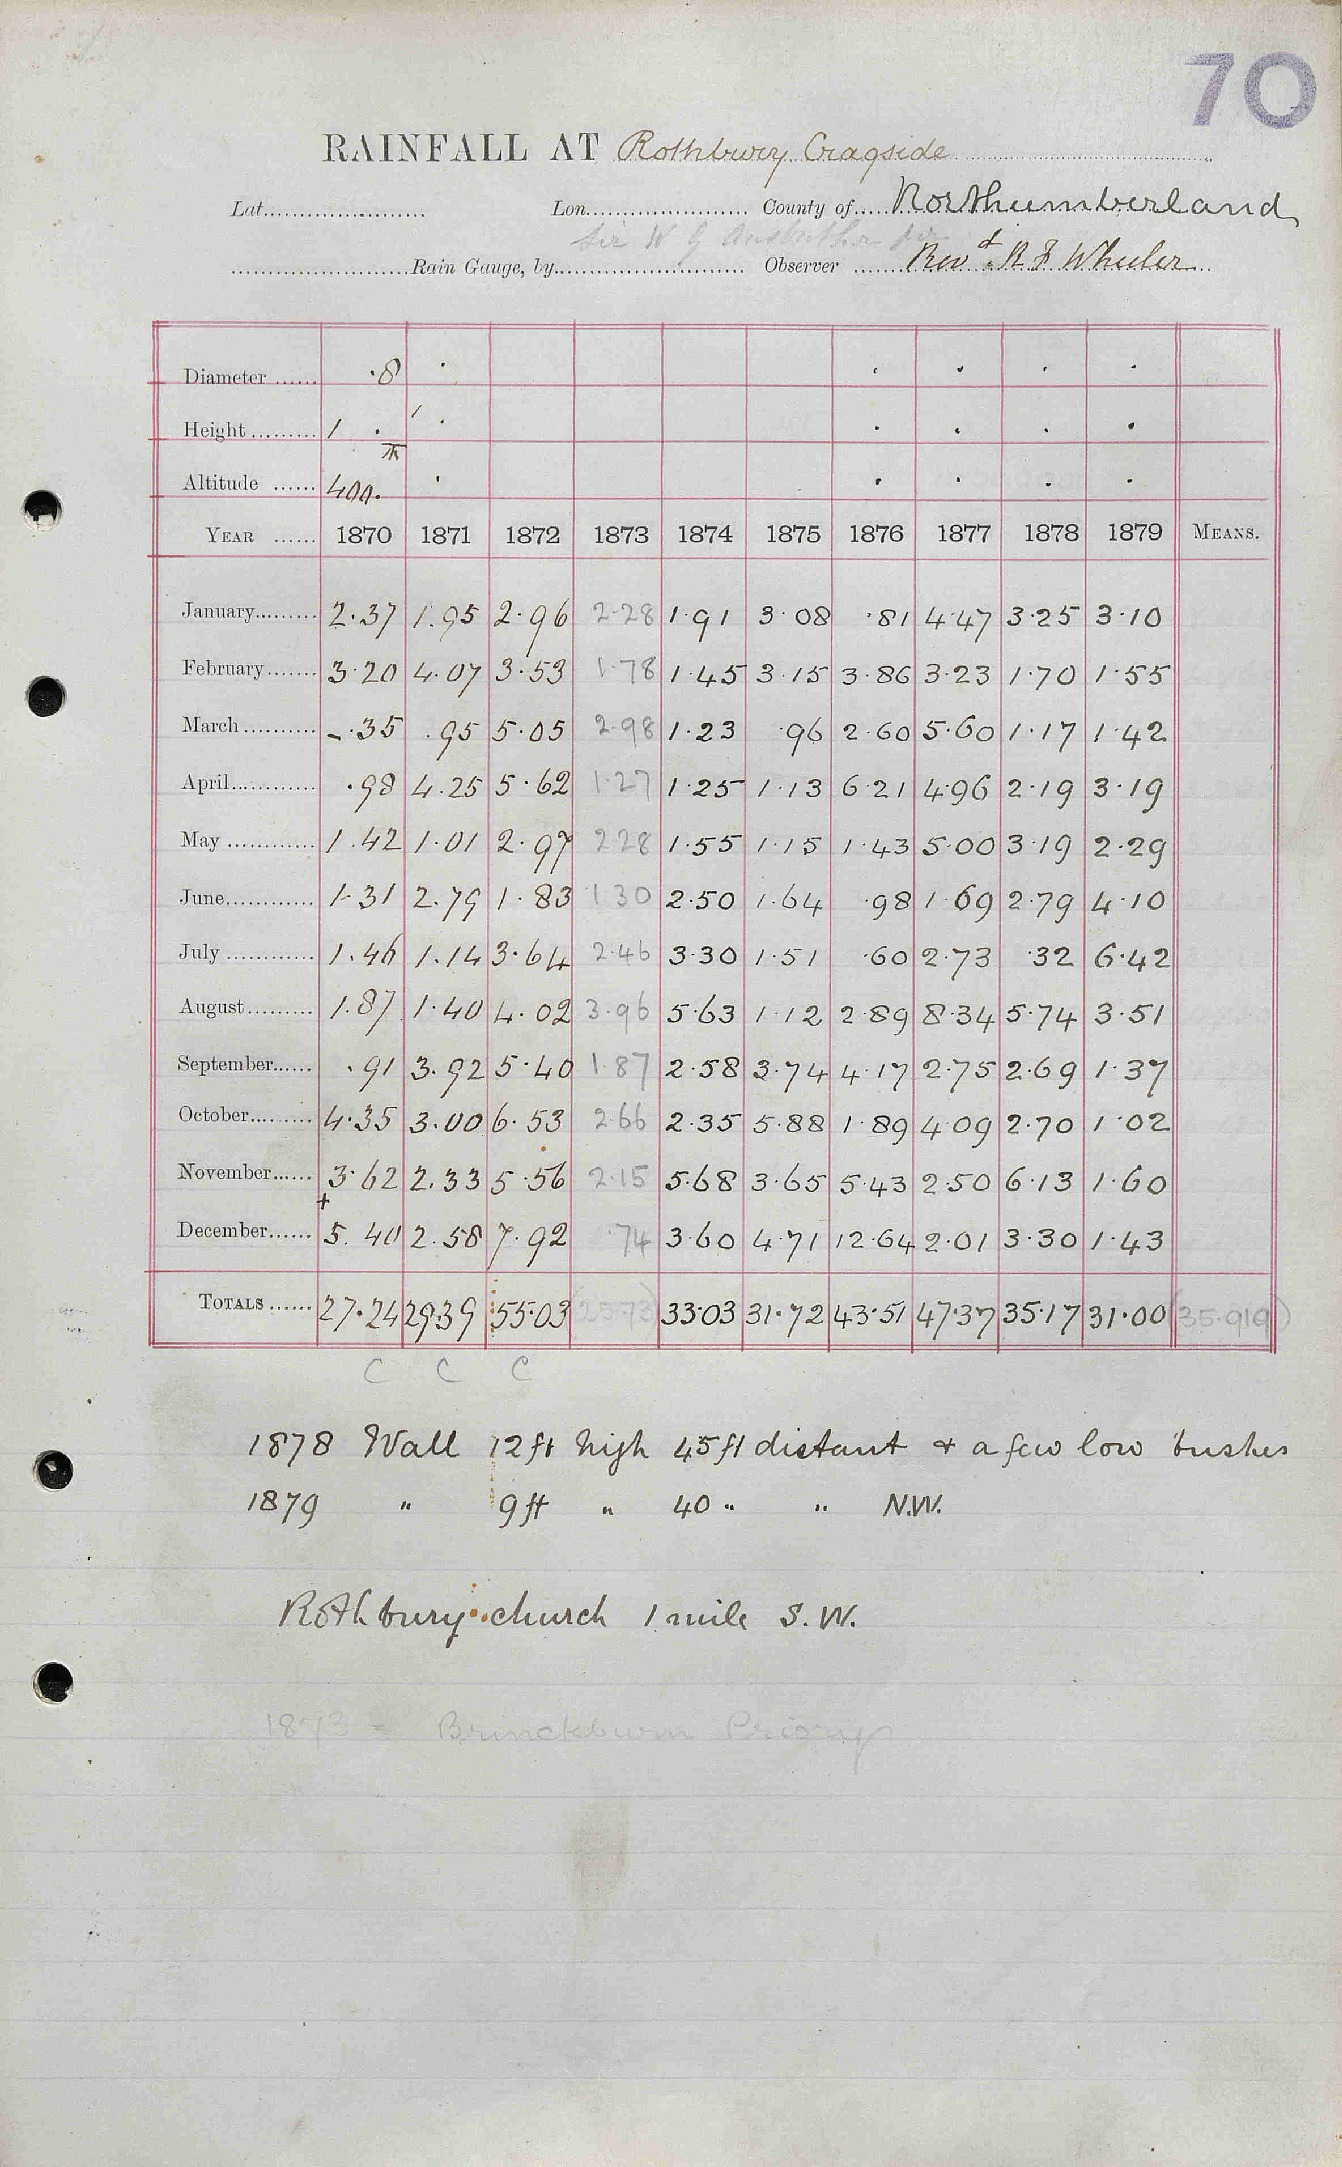 70
RAINFALL AT Rothbury Cragside
Lat. Lon. County of Northumberland
Sir W G
Rain Gauge, by Observer Revd. R F Wheeler
Diameter ·8
Height 1 ·
Altitude 400.
YEAR 1870 1871 1872 1873 1874 1875 1876 1877 1878 1879 MEANS.
January 2·37 1·95 2·96 2·28 1·91 3·08 ·81 4·47 3·25 3·10
February 3·20 4·07 3·53 1·78 1·45 3·15 3·86 3·23 1·70 1·55
March -·35 ·95 5·05 2·98 1·23 ·96 2·60 5·60 1·17 1·42
April ·98 4·25 5·62 1·27 1·25 1·13 6·21 4·96 2·19 3·19
May 1·42 1·01 2·97 2·28 1·55 1·15 1·43 5·00 3·19 2·29
June 1·31 2·79 1·83 1·30 2·50 1·64 ·98 1·69 2·79 4·10
July 1·46 1·14 3·64 2·46 3·30 1·51 ·60 2·73 ·32 6·42
August 1·87 1·40 4·02 3·96 5·63 1·12 2·89 8·34 5·74 3·51
September ·91 3·92 5·40 1·87 2·58 3·74 4·17 2·75 2·69 1·37
October 4·35 3·00 6·53 2·66 2·35 5·88 1·89 4·09 2·70 1·02
November 3·62 2·33 5·56 2·15 5·68 3·65 5·43 2·50 6·13 1·60
+
December 5·40 2·58 7·92 ·74 3·60 4·71 12·64 2·01 3·30 1·43
TOTALS 27·24 29·39 55·03 (25·73) 33·03 31·72 43·51 47·37 35·17 31·00 (35·919)
C C C
1878 Wall 12ft high 45ft distant & a few low bushes
1879 " 9ft " 40 " " N.W.
Rothbury church 1 mile S.W.
1873 = Brinckburn Priory